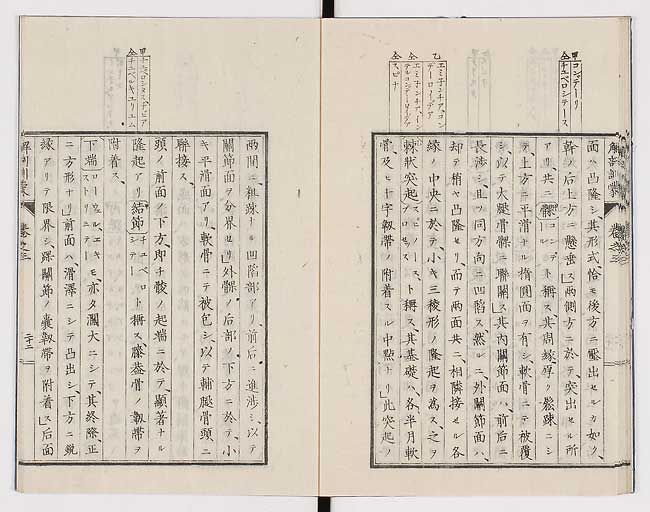 甲コンデーリ
全チュベロシテース
面ハ凸隆シ其形式恰モ後方ニ壓出セルカ如ク、
幹ノ后上方ニ懸垂ス」両側方ニ於テ、突出セル所
アリ、共ニ髁コンデール ト稱ス其周縁厚ク鬆疎ニシ
テ上方ニ平滑ナル楕圓面ヲ有シ軟骨ニテ被覆
シ、以テ大腿骨髁ニ聯關ス」其内關節面ハ、前后ニ
長渉シ、且ツ同方向ニ凹陷ス然ルニ、外關節面ハ、
却テ稍ヤ凸隆セリ而テ両面共ニ、相隣接セル各
縁ノ中央ニ於テ、小キ三稜形ノ隆起ヲ為ス、之ヲ
棘状突起 ト稱ス、其基礎ハ、各半月軟
骨及ヒ十字靱帯ノ附着スル中點ナリ」此突起ノ
乙エミ子ンチア、コン
テーロイデア
全エミ子ンチア、イン
テルコンデーロイデア
全スピナ
両間ニ粗疎ナル凹陷部アリ、前后ニ進渉シ以テ
關節面ヲ分界セリ」外髁ノ后部ノ下方ニ於テ、小
キ平滑面アリ、軟骨ニテ被包シ、以テ輔腿骨頭ニ
聯接ス、
頭ノ前面ノ下方、即チ骹ノ起端ニ於テ、顯著ナル
隆起アリ結節チュベロシテー ト稱ス、膝蓋骨ノ靱帯ヲ
附着ス、
下端 亦タ濶大ニシテ、其終際、正
ニ方形ナリ」前面ハ、滑澤ニシテ凸出シ、下方ニ鋭
縁アリテ限界シ踝關節ノ嚢靱帯ヲ附着ス」后面
解剖訓蒙
卷之三